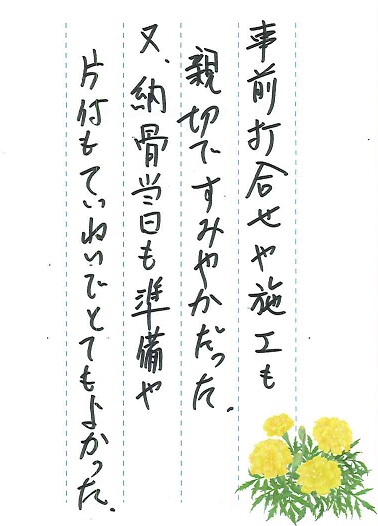 事前打合せや施工も
親切ですみやかだった。
又、納骨当日も準備や
片付もていねいでとてもよかった。